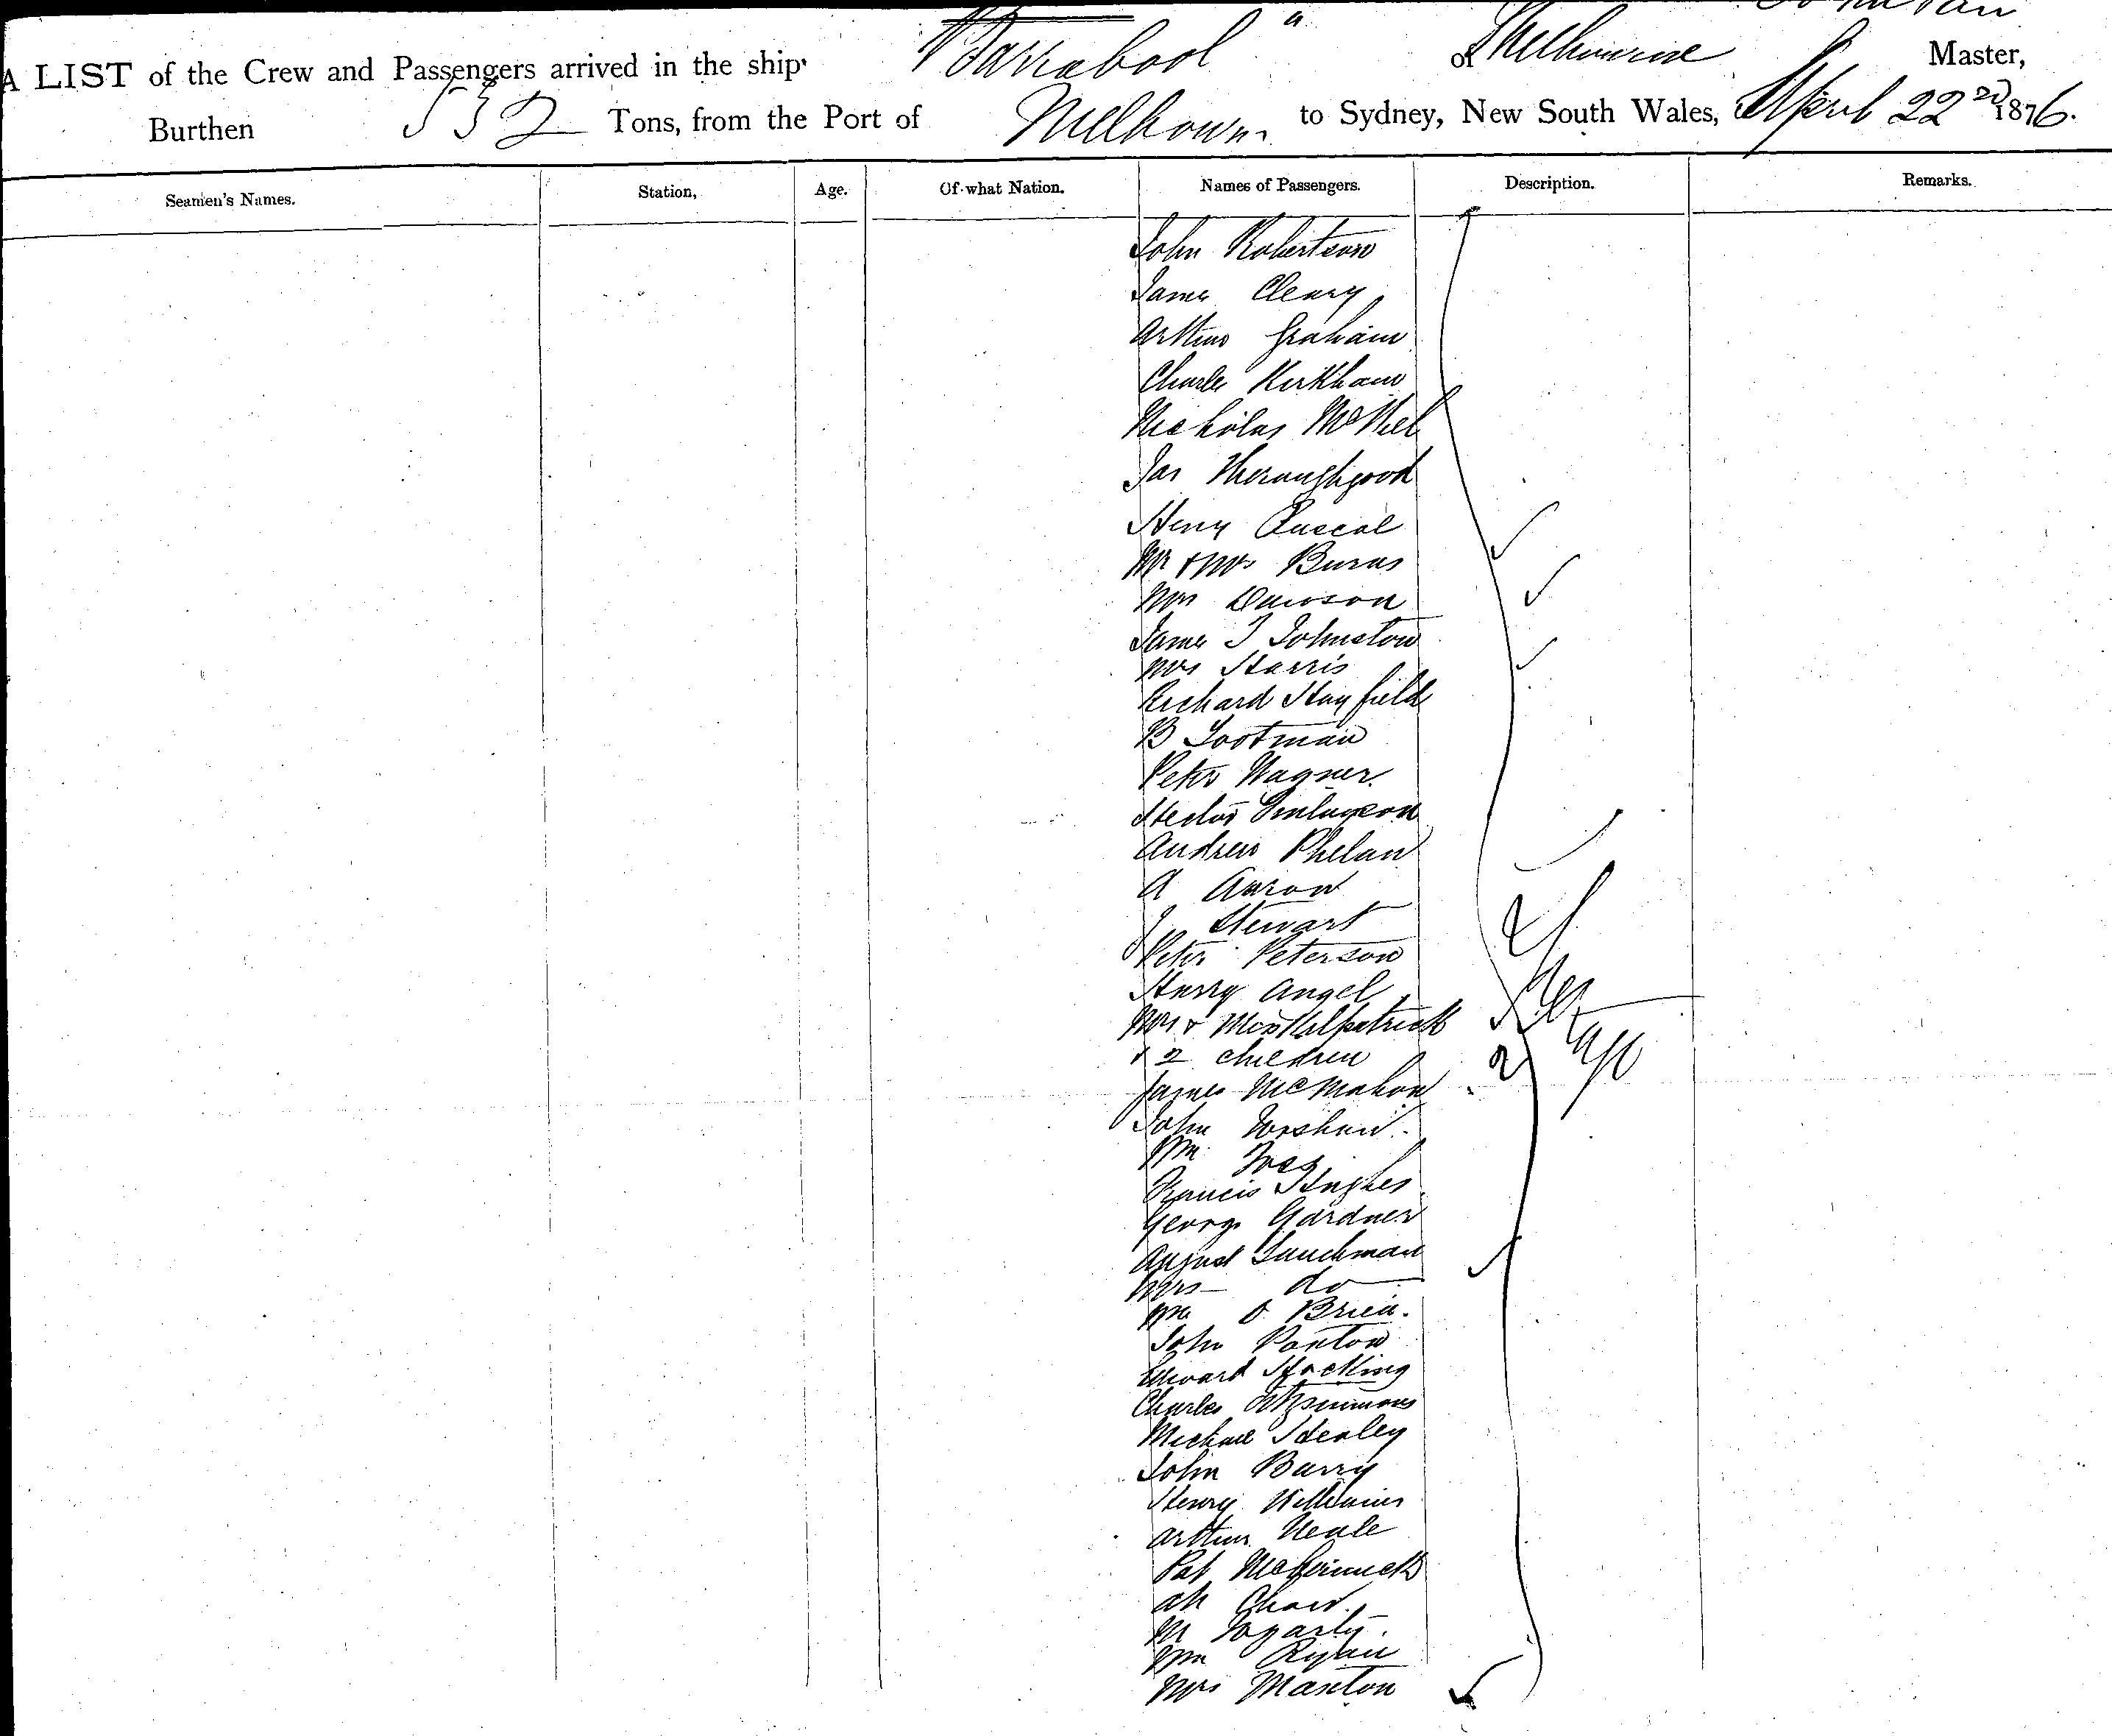 A LIST of the Crew and Passengers arrived in the ship "Barrabool" of Melbourne Master,
Burthen 532 Tons, from the Port of Melbourn to Sydney, New South Wales, April 22nd 1876.
Seamen's Names. Station, Age. Of what Nation. Names of Passengers. Description. Remarks.
John Robertson
James Cleary
Arthur Graham
Charles Kirkham
Nicholas McNeil
Jas Thoroughgood
Henry
Mr & Mrs Burns
Mrs Dawson
James J Johnston
Mrs Harris
Richard Hayfield
B Footman
Peter Wagner
Hector Finlayson
Andrew Phelan
A Aaron
J Stewart
Peter Peterson
Harry Angel
Mrs & Miss Kilpatrick
& 2 children
2
James McMahon
John
Wm
Francis Hughes
George Gardner
August
Mrs do
Wm O Brien.
John Panton
Edward Hocking
Charles Fitzsimmons
Michael Healey
John Barry
Henry Williams
Arthur Neale
Pat
Ah
M Fogarty.
Wm Ryan
Mrs Manton